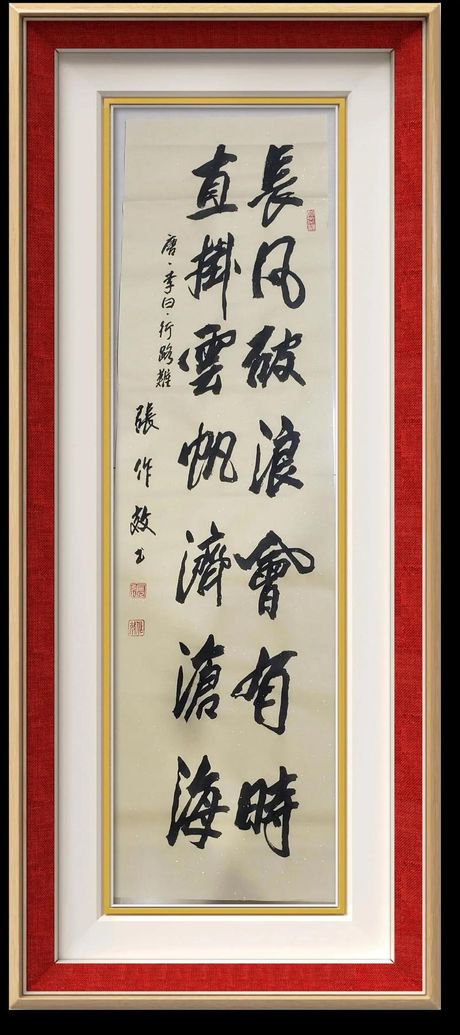 長风破浪會有時
直掛雲帆濟滄海
唐·李白·行路難
張作效书